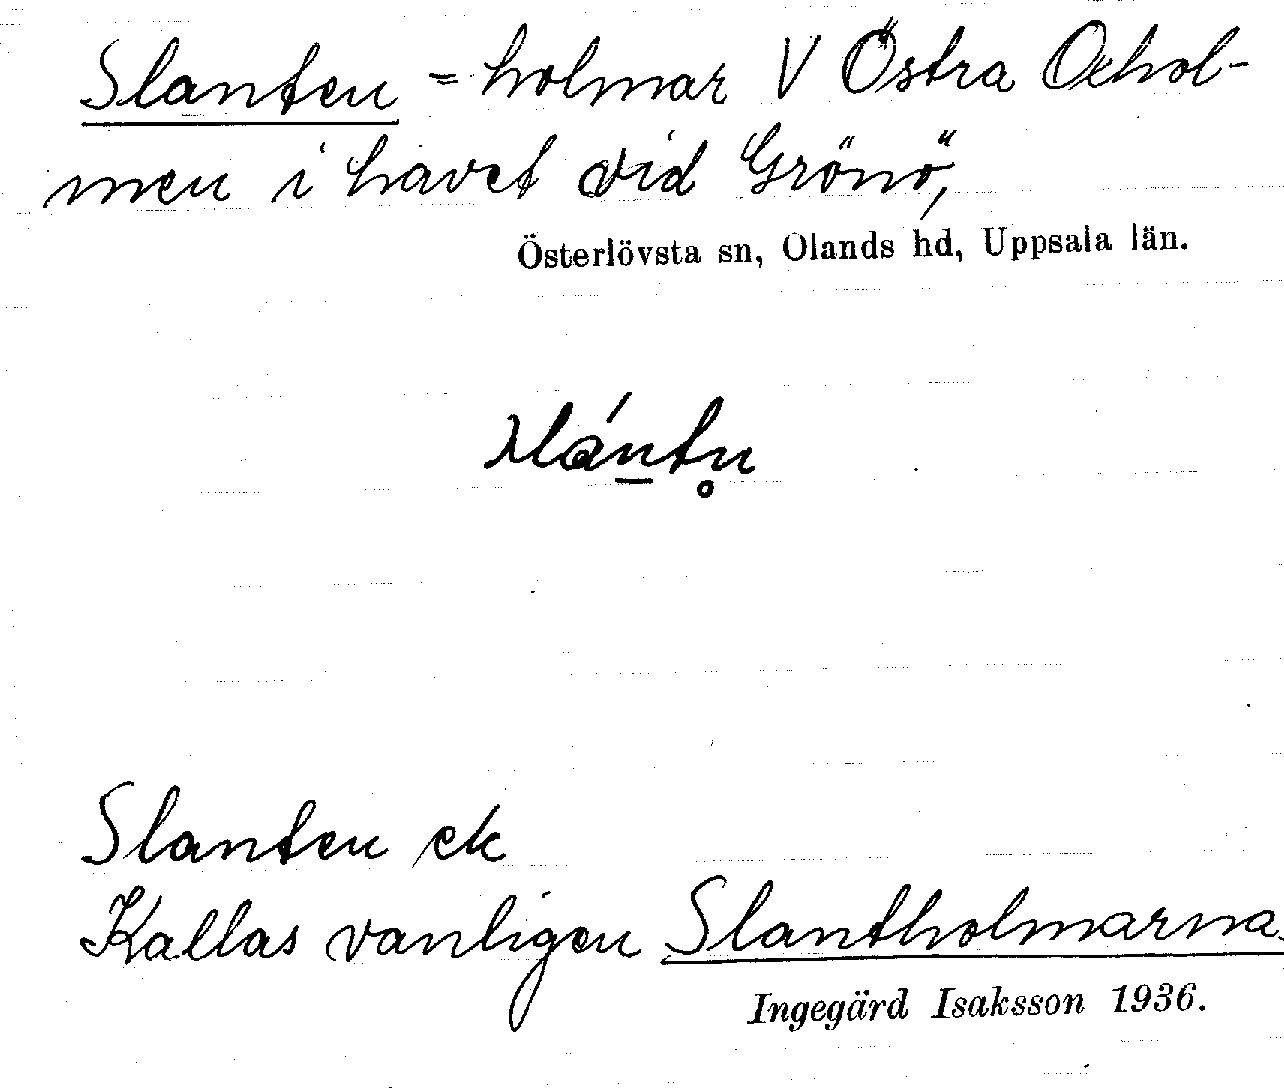 Slanten = holmar V Östra Ochol-
men i havet vid Grönö,
Österlövsta sn, Olands hd, Uppsala län.
Slanten ek
Kallas vanligen Slantholmarna.
Ingegärd Isaksson 1936.